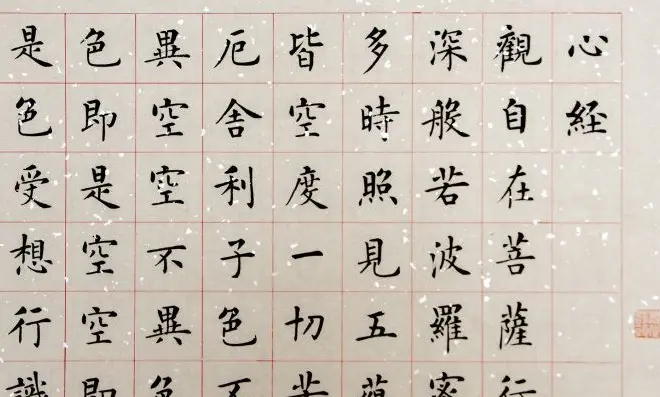 心經
觀自在菩薩行
深般若波羅蜜
多時照見五蘊
皆空度一切苦
厄舍利子色不
異空空不異色
色即是空空即
是色受想行識